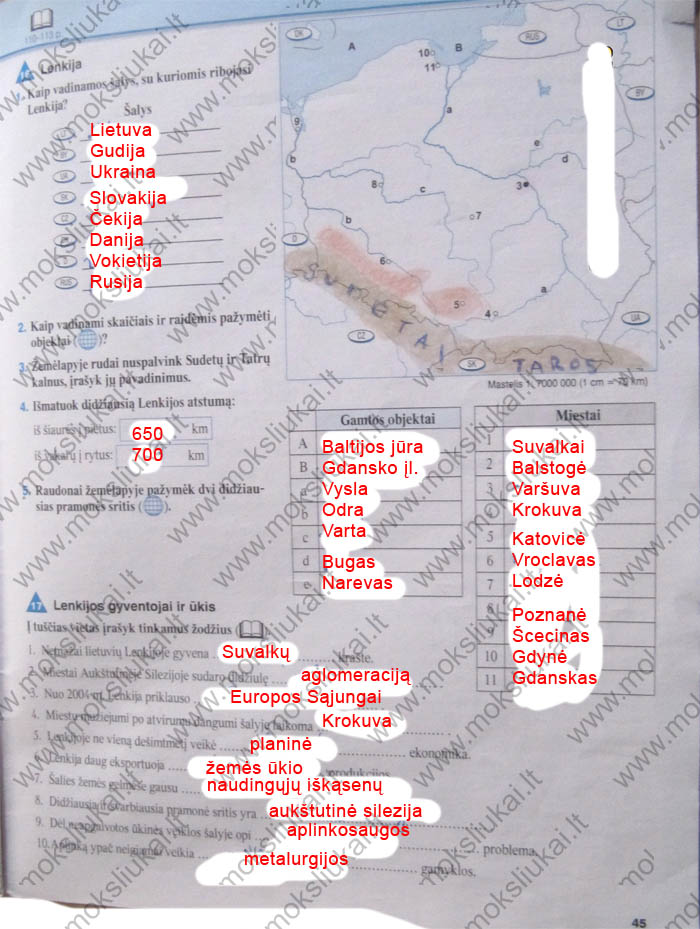 110-113 p.
16 Lenkija
1. Kaip vadinamos šalys, su kuriomis ribojasi
Lenkija?
Šalys
LT Lietuva
BY Gudija
UA Ukraina
SK Slovakija
CZ Čekija
DK Danija
D Vokietija
RUS Rusija
2. Kaip vadinami skaičiais ir raidėmis pažymėti
objektai ( )?
3. Žemėlapyje rudai nuspalvink Sudetų ir Tatrų
kalnus, įrašyk jų pavadinimus.
4. Išmatuok didžiausią Lenkijos atstumą:
iš šiaurės į pietus: 650 km
iš vakarų į rytus: 700 km
5. Raudonai žemėlapyje pažymėk dvi didžiau-
sias pramonės sritis ( ).
DK
A
B
10
11
RUS
LT
BY
9
a
e
d
b
8
c
3
7
b
6
5
4
a
D
CZ
SK
UA
SUDETAI
TAROS
Mastelis 1: 7000 000 (1 cm = 70 km)
Gamtos objektai
A Baltijos jūra
B Gdansko įl.
a Vysla
b Odra
c Varta
d Bugas
e Narevas
Miestai
Suvalkai
2 Balstogė
3 Varšuva
Krokuva
5 Katovicė
6 Vroclavas
7 Lodzė
8 Poznanė
9 Ščecinas
10 Gdynė
11 Gdanskas
17 Lenkijos gyventojai ir ūkis
Į tuščias vietas įrašyk tinkamus žodžius ( ).
1. Nemažai lietuvių Lenkijoje gyvena Suvalkų krašte.
2. Miestai Aukštutinėje Silezijoje sudaro didžiulę aglomeraciją
3. Nuo 2004 m. Lenkija priklauso Europos Sąjungai
4. Miestu muziejumi po atviruoju dangumi šalyje laikoma Krokuva
5. Lenkijoje ne vieną dešimtmetį veikė planinė ekonomika.
6. Lenkija daug eksportuoja žemės ūkio produkcijos
7. Šalies žemės gelmėse gausu naudingųjų iškąsenų
8. Didžiausia ir svarbiausia pramonė sritis yra aukštutinė silezija
9. Dėl neapgalvotos ūkinės veiklos šalyje opi aplinkosaugos problema.
10. Aplinką ypač neigiamai veikia metalurgijos gamyklos.
45
www.moksliukai.lt